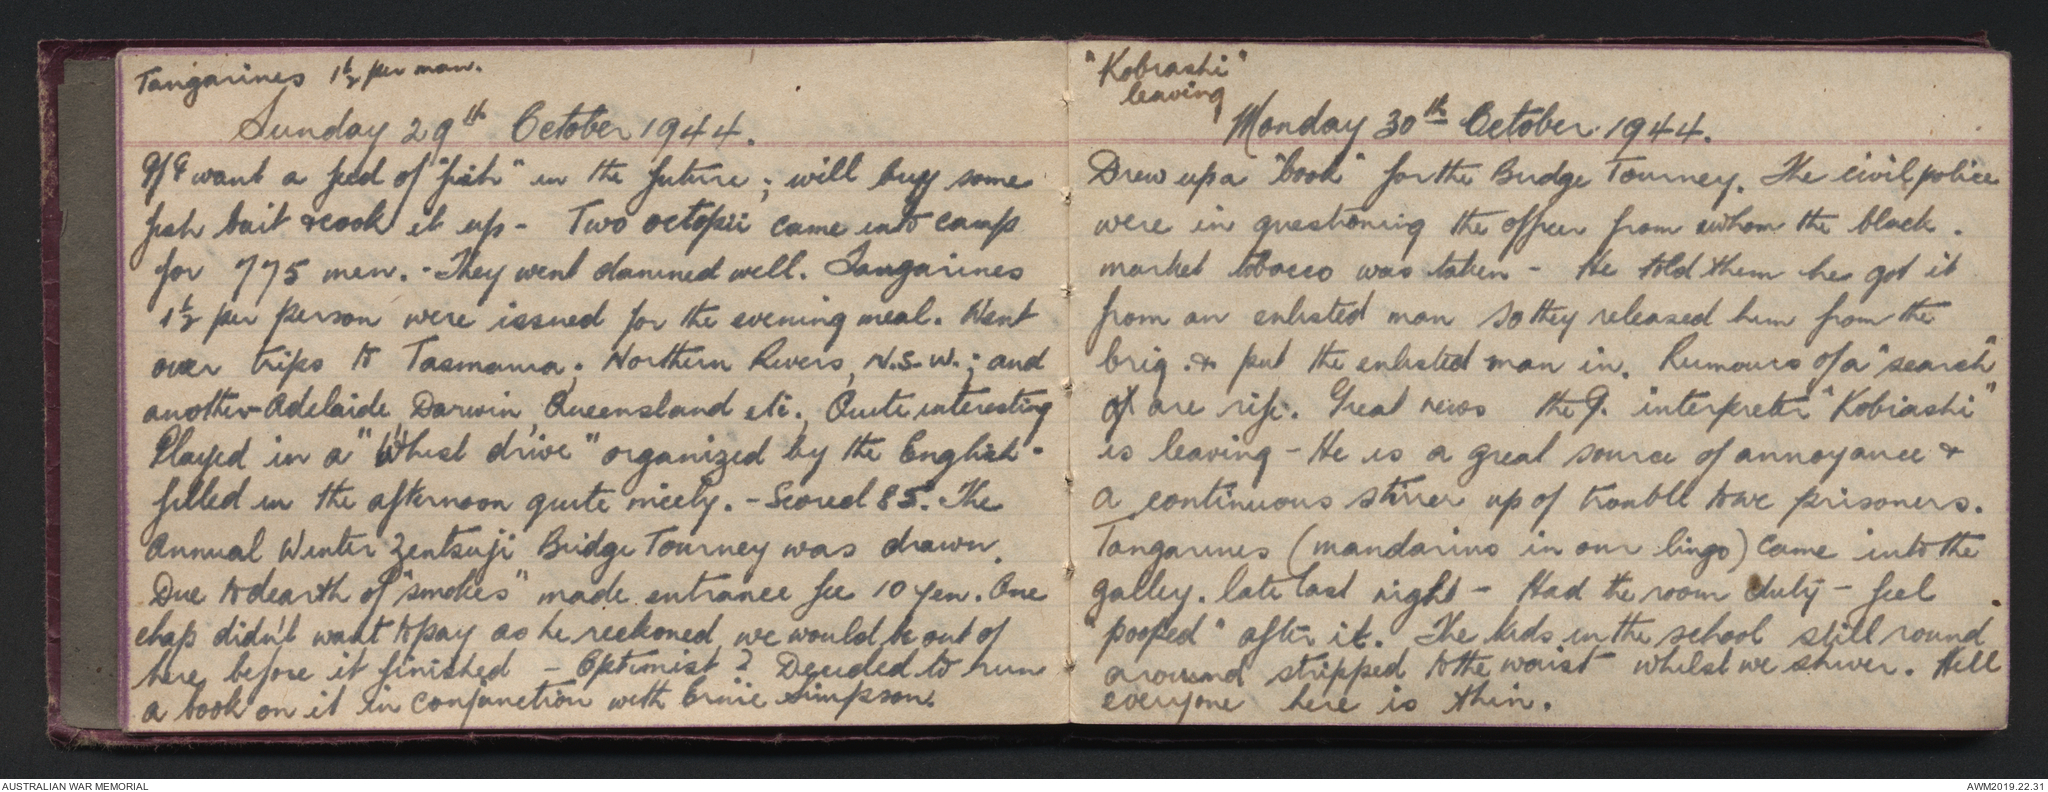 Tangarines 1½ per man.
Sunday 29th October 1944.
If I want a feed of "fish" in the future; will buy some
fish bait & cook it up - Two octopii came into camp
for 775 men. - They went damned well. Tangarines
1½ per person were issued for the evening meal. Went
over trips to Tasmania; Northern Rivers, N.S.W.; and
another Adelaide, Darwin, Queensland etc; Quite interesting
Played in a "Whist drive" organized by the English -
filled in the afternoon quite nicely. - Scored 85. The
Annual Winter Zentsuji Bridge Tourney was drawn.
Due to dearth of "smokes" made entrance fee 10 yen. One
chap didn't want to pay as he reckoned we would be out of
here before it finished - Optimist? Decided to run
a book on it in conjunction with Ernie Simpson.
"Kobiashi"
leaving
Monday 30th October 1944.
Drew up a "book" for the Bridge Tourney. The civil police
were in questioning the officer from whom the black.
market tobacco was taken - He told them he got it
from an enlisted man so they released him from the
brig. & put the enlisted man in. Rumours of a "search"
are rife. Great news the J. interpreter "Kobiashi"
is leaving - He is a great source of annoyance &
a continuous stirrer up of trouble to we prisoners.
Tangarines (mandarins in our lingo) came into the
galley. late last night - Had the room duty - feel
"pooped" after it. The kids in the school still round
around stripped to the waist whilst we shiver. Hell
everyone here is thin.
AUSTRALIAN WAR MEMORIAL
AWM2019.22.31